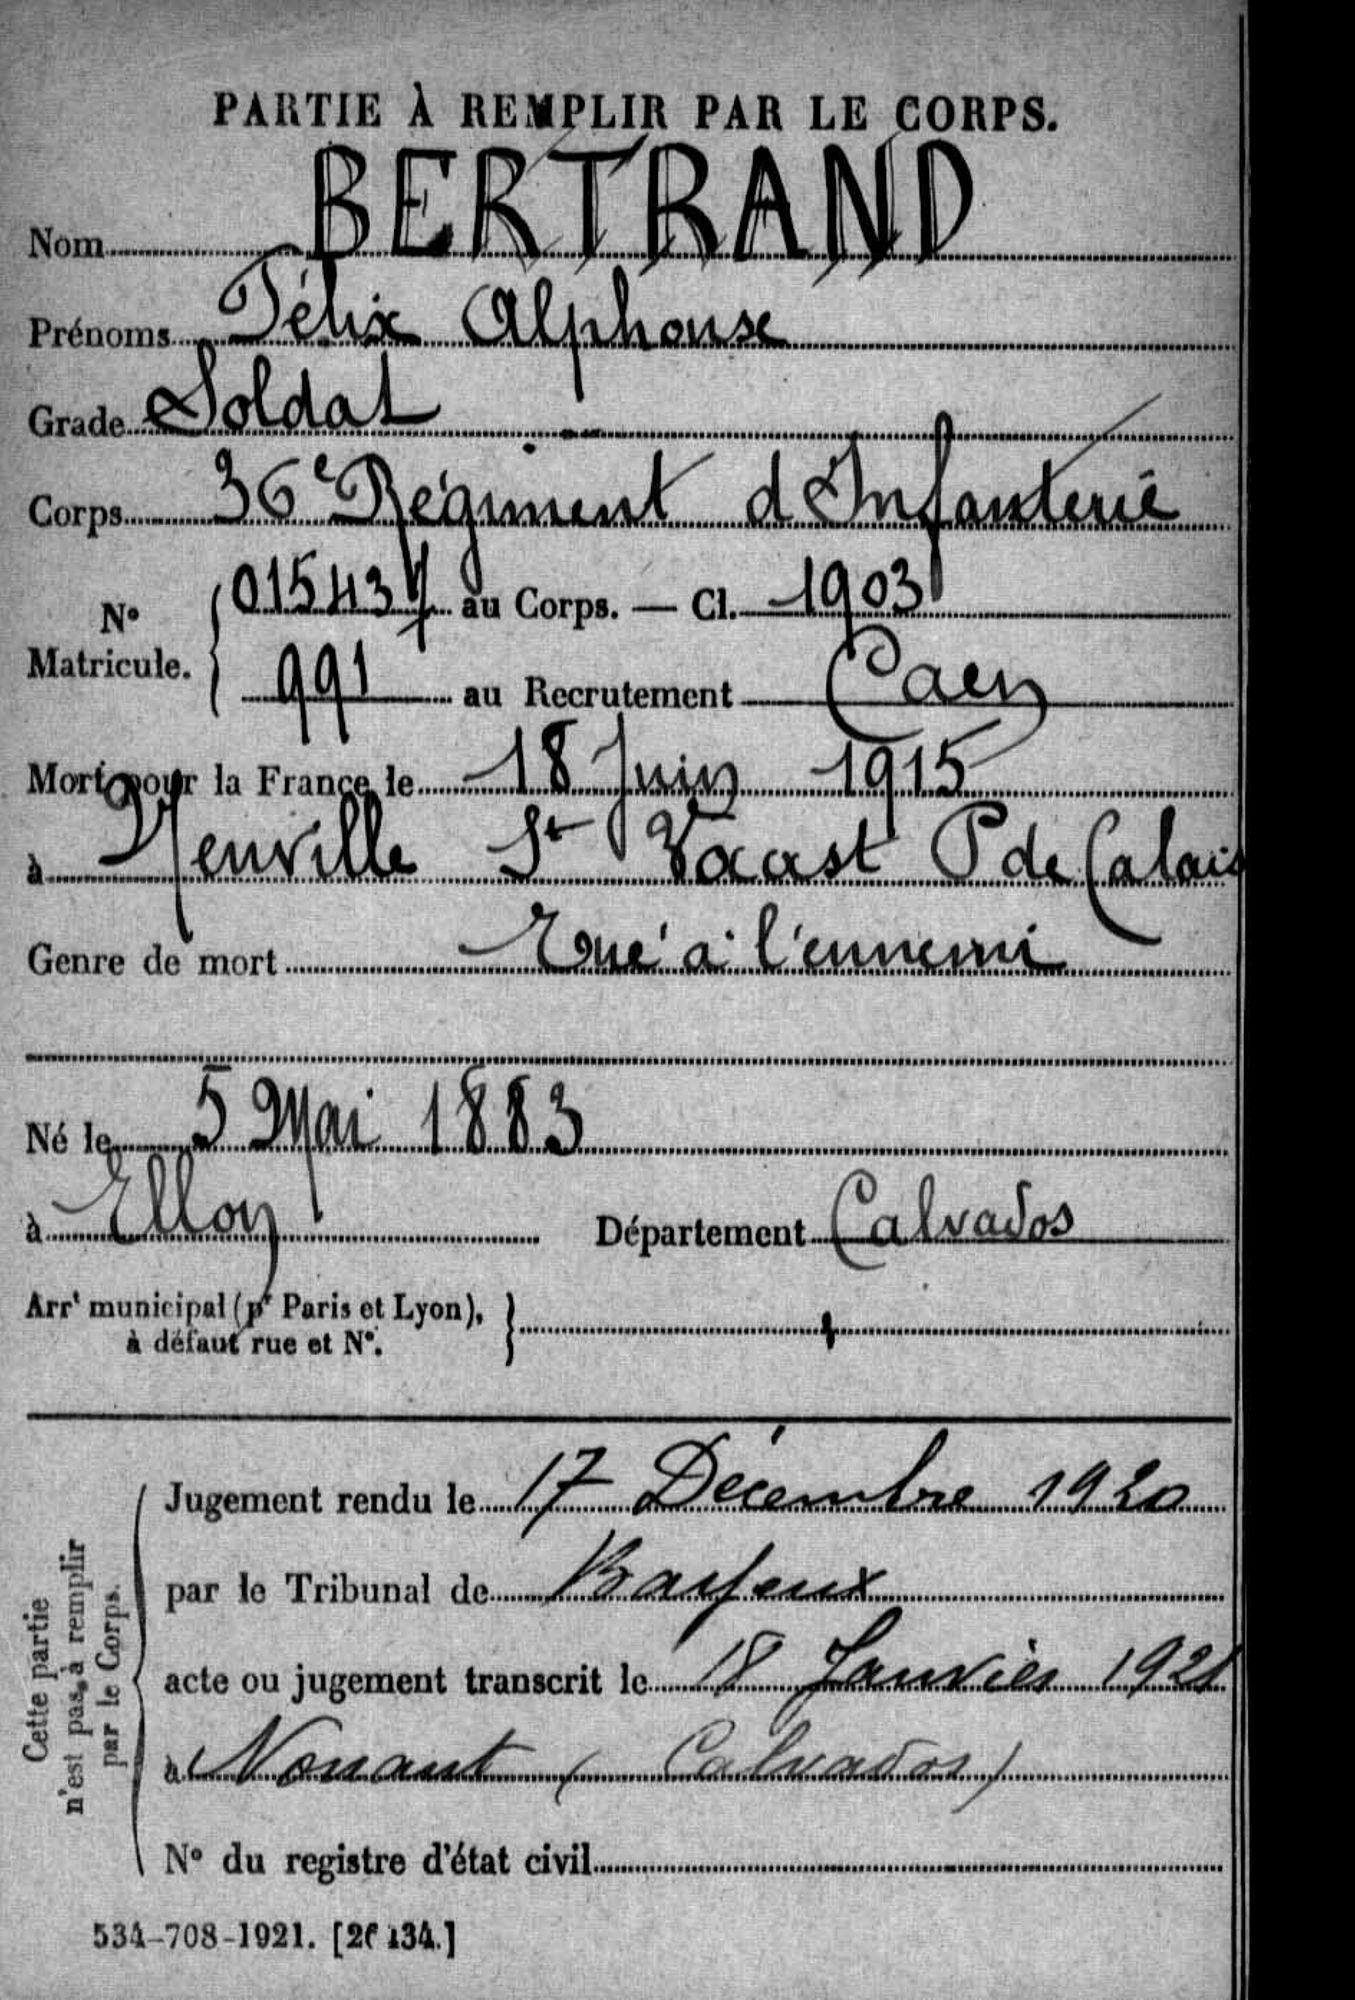 PARTIE À REMPLIR PAR LE CORPS.
Nom BERTRAND
Prénoms Félix Alphonse
Grade Soldat
Corps 36e Régiment d'Infanterie
No Matricule. { 015437 au Corps. — Cl. 1903
991 au Recrutement Caen
Mort pour la France le 18 Juin 1915
à Neuville St Vaast P de Calais
Genre de mort Tué à l'ennemi
Né le 5 Mai 1883
à Ellon Département Calvados
Arrt municipal (pr Paris et Lyon),
à défaut rue et No.
Cette partie
n'est pas à remplir
par le Corps.
Jugement rendu le 17 Décembre 1920
par le Tribunal de Bayeux
acte ou jugement transcrit le 18 Janvier 1921
à Nonant (Calvados)
No du registre d'état civil
534-708-1921. [26434.]